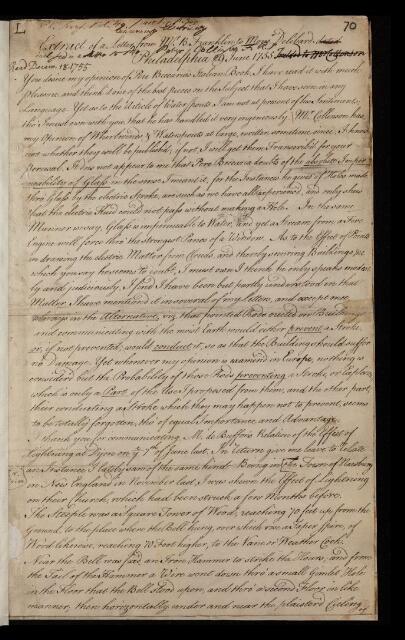 L
70
Extract of a Letter from Mr. B. Franklin to Monsr. Delibard,
Philadelphia June 1755.
Read Decem. 18. 1755
You desire my opinion of Pere Beccaria's Italian Book. I have read it with much
Pleasure, and think it one of the best pieces on the Subject that I have seen in any
Language. Yet as to the Article of Water spouts I am not at present of his Sentiments,
tho' I must own with you that he has handled it very ingeniously. Mr. Collinson has
my Opinion of Whirlwinds & Waterspouts at large, written sometime since. I know
not whether they will be publish'd; if not I will get them Transcrib'd for your
Perusal. It does not appear to me that Pere Beccaria doubts of the absolute Imper-
meability of Glass in the sense I meant it, for the Instances he gives of Holes made
thro' Glass by the electric Stroke, are such as we have all experienced, and only shew
that the electric Fluid could not pass without making a Hole. In the same
Manner we say, Glass is impermeable to Water, and yet a Stream from a Fire
Engine will force thro' the strongest Panes of a Window. As to the Effect of Points
in drawing the electric Matter from Clouds, and thereby securing Buildings &c
which you say he seems to doubt, I must own I think he only speaks modest-
ly and judiciously, I find I have been but partly understood in that
Matter. I have mention'd it in several of my Letters, and except once
always in the Alternative, viz. that pointed Rods erected on Buildings
and communicating with the moist Earth would either prevent a Stroke,
or, if not prevented, would conduct it, so as that the Building should suffer
no Damage. Yet whenever my Opinion is examin'd in Europe, nothing is
consider'd but the Probability of those Rods preventing a Stroke, or Explosion,
which is only a Part of the Use I proposed from them, and the other part,
their conducting a Stroke which they may happen not to prevent, seems
to be totally forgotten, tho' of equal Importance and Advantage.
I thank you for communicating M. de Buffon's Relation of the Effect of
Lightning at Dijon on ye 7th of June last. In return give me leave to relate
an Instance I lately saw of the same kind. Being in the Town of Newbury
in New England in November last, I was shewn the Effect of Lightning
on their Church, which had been struck a few Months before.
The Steeple was a Square Tower of Wood, reaching 70 feet up from the
Ground, to the place where the Bell hung, over which rose a Taper Spire, of
Wood likewise, reaching 70 Foot higher, to the Vane or Weather Cock.
Near the Bell was fix'd an Iron Hammer to strike the Hours, and from
the Tail of the Hammer a Wire went down thro' a small Gimlet Hole
in the Floor that the Bell stood upon, and thro' a second Floor in like
manner, then horizontally under and near the plaister'd Cieling
of